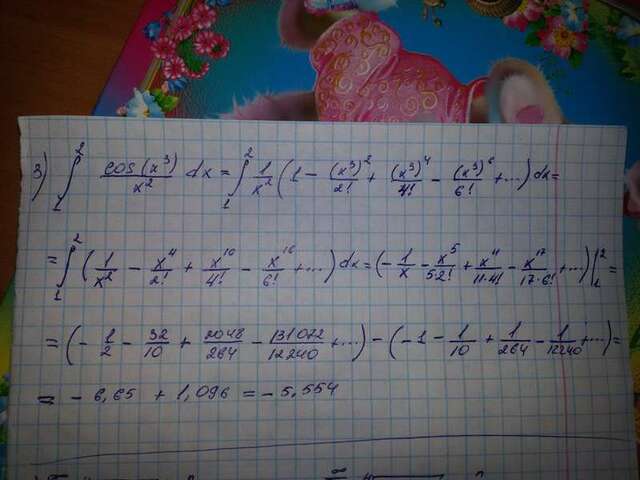 3) ∫₁² cos(x³)/x² dx = ∫₁² 1/x² (1 - (x³)²/2! + (x³)⁴/4! - (x³)⁶/6! + ...) dx =
= ∫₁² (1/x² - x⁴/2! + x¹⁰/4! - x¹⁶/6! + ...) dx = (-1/x - x⁵/5·2! + x¹¹/11·4! - x¹⁷/17·6! + ...)|₁² =
= (-1/2 - 32/10 + 2048/264 - 131072/12240 + ...) - (-1 - 1/10 + 1/264 - 1/12240 + ...) =
= - 6,65 + 1,096 = - 5,554